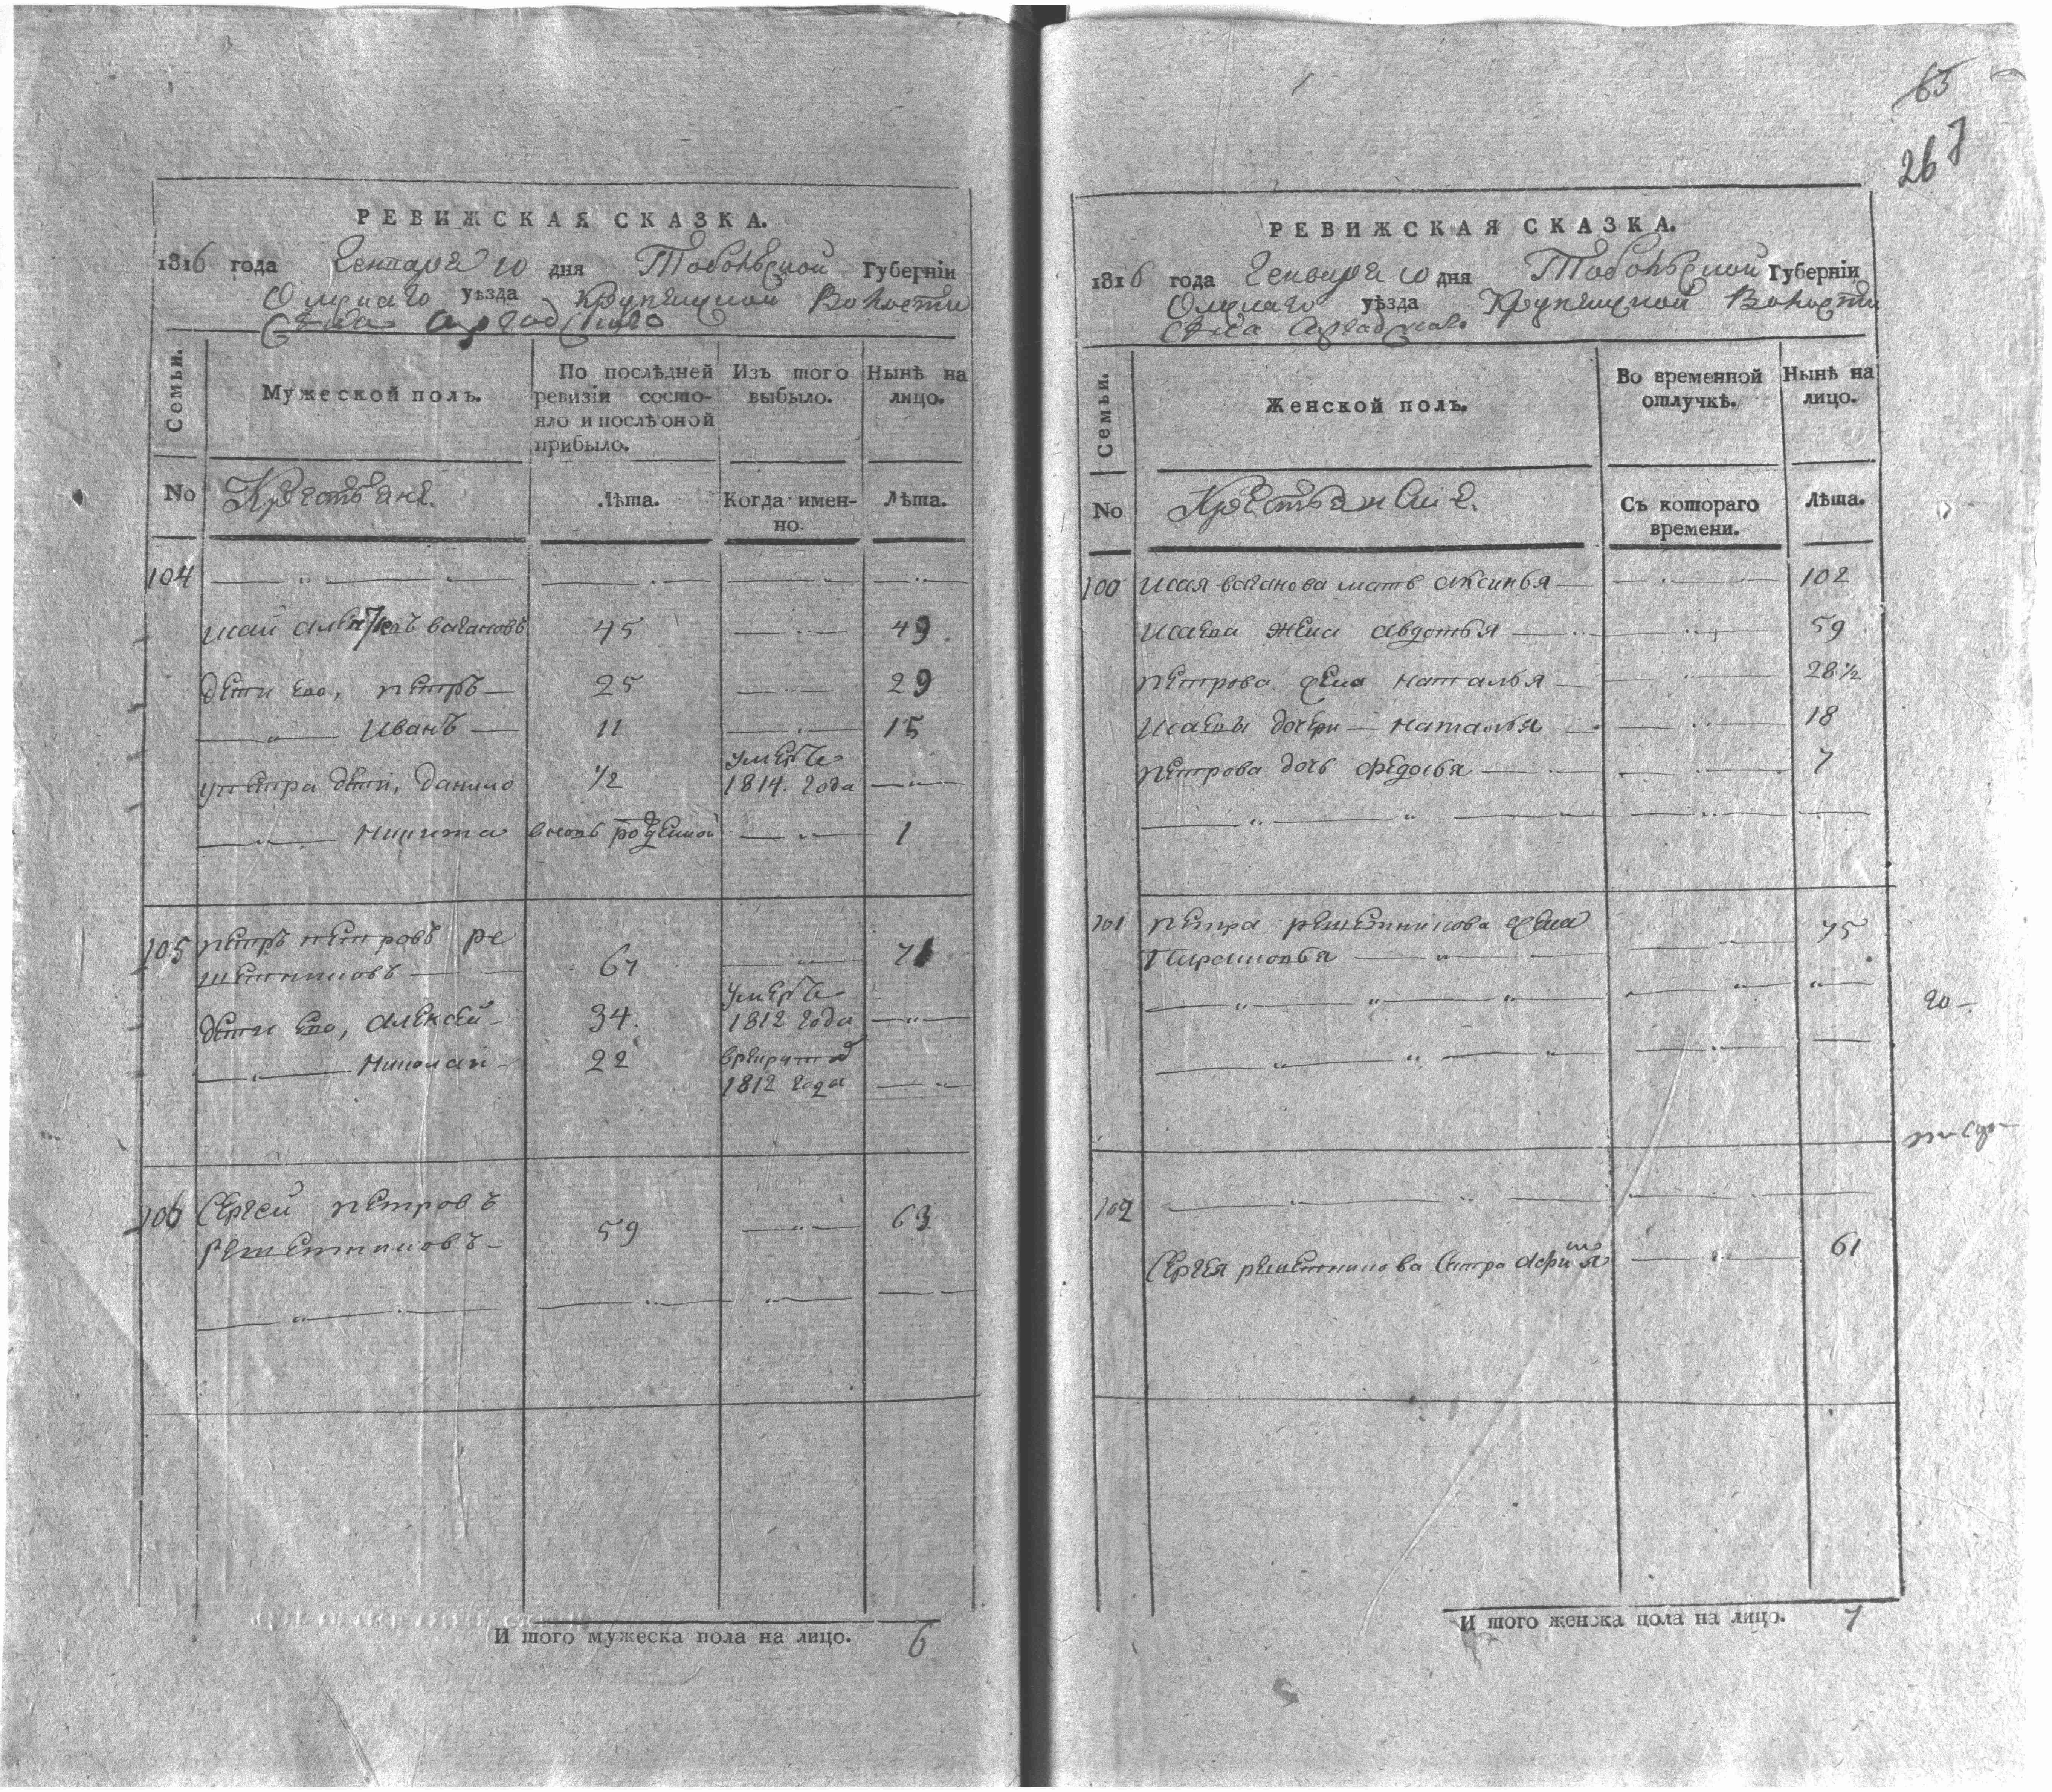 РЕВИЖСКАЯ СКАЗКА.
1816 года Генваря 10 дня Тобольской Губерніи
Омскаго уѣзда Крупянской Волости
Села
Семьи.
Мужеской полъ.
По послѣдней ревизіи состояло и послѣ оной прибыло.
Изъ того выбыло.
Нынѣ на лицо.
No
Крестьяне.
Лѣта.
Когда именно.
Лѣта.
104
Исай Вагановъ 45 49
дети ево, Петръ 25 29
Иванъ 11 15
Упетра дети, Данило 1/2 умеръ 1814. года
Никита вновь рожденной 1
105 Петръ Петровъ Ре
шетниковъ 67 71
дети ево, Алексей 34. умеръ 1812 года
Николай 22 врекруты 1812 года
106 Сергей Петровъ
Решетниковъ 59 63
И того мужеска пола на лицо. 6
63
267
РЕВИЖСКАЯ СКАЗКА.
1816 года Генваря 10 дня Тобольской Губерніи
Омскаго уѣзда Крупянской Волости
Села
Семьи.
Женской полъ.
Во временной отлучкѣ.
Нынѣ на лицо.
No
Съ котораго времени.
Лѣта.
100 Исая Ваганова мать Аксинья 102
Исаева жена Авдотья 59
Петрова жена Наталья 28 1/2
Исаевы дочери Наталья 18
Петрова дочь Федосья 7
101 Петра Решетникова жена 75
102
Сергея Решетникова сестра 61
И того женска пола на лицо. 7